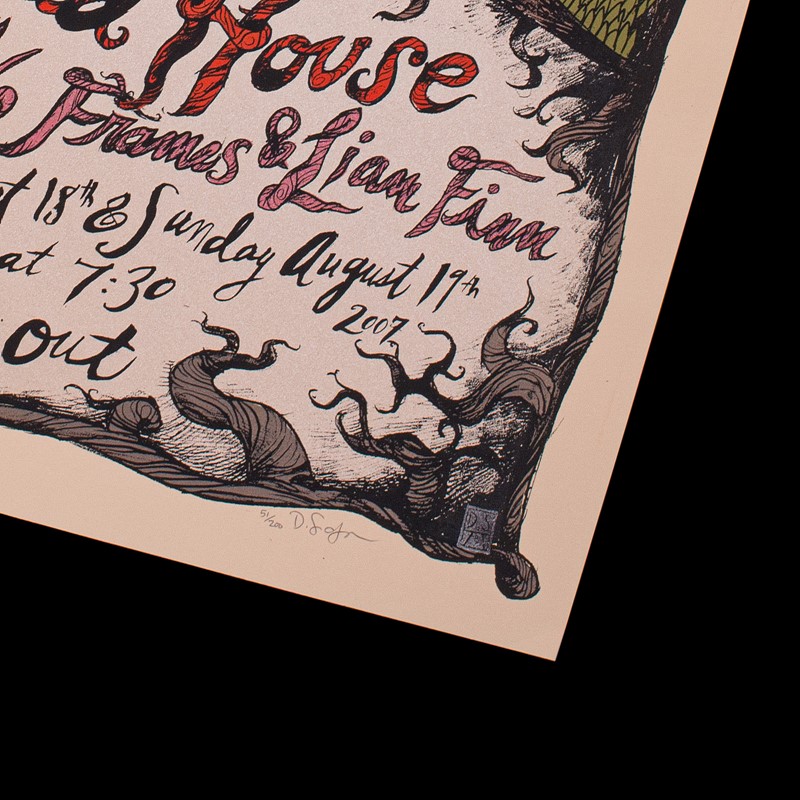 d House
Frames & Lian Finn
t 18th & Sunday August 19th
at 7:30
2007
out
51/200